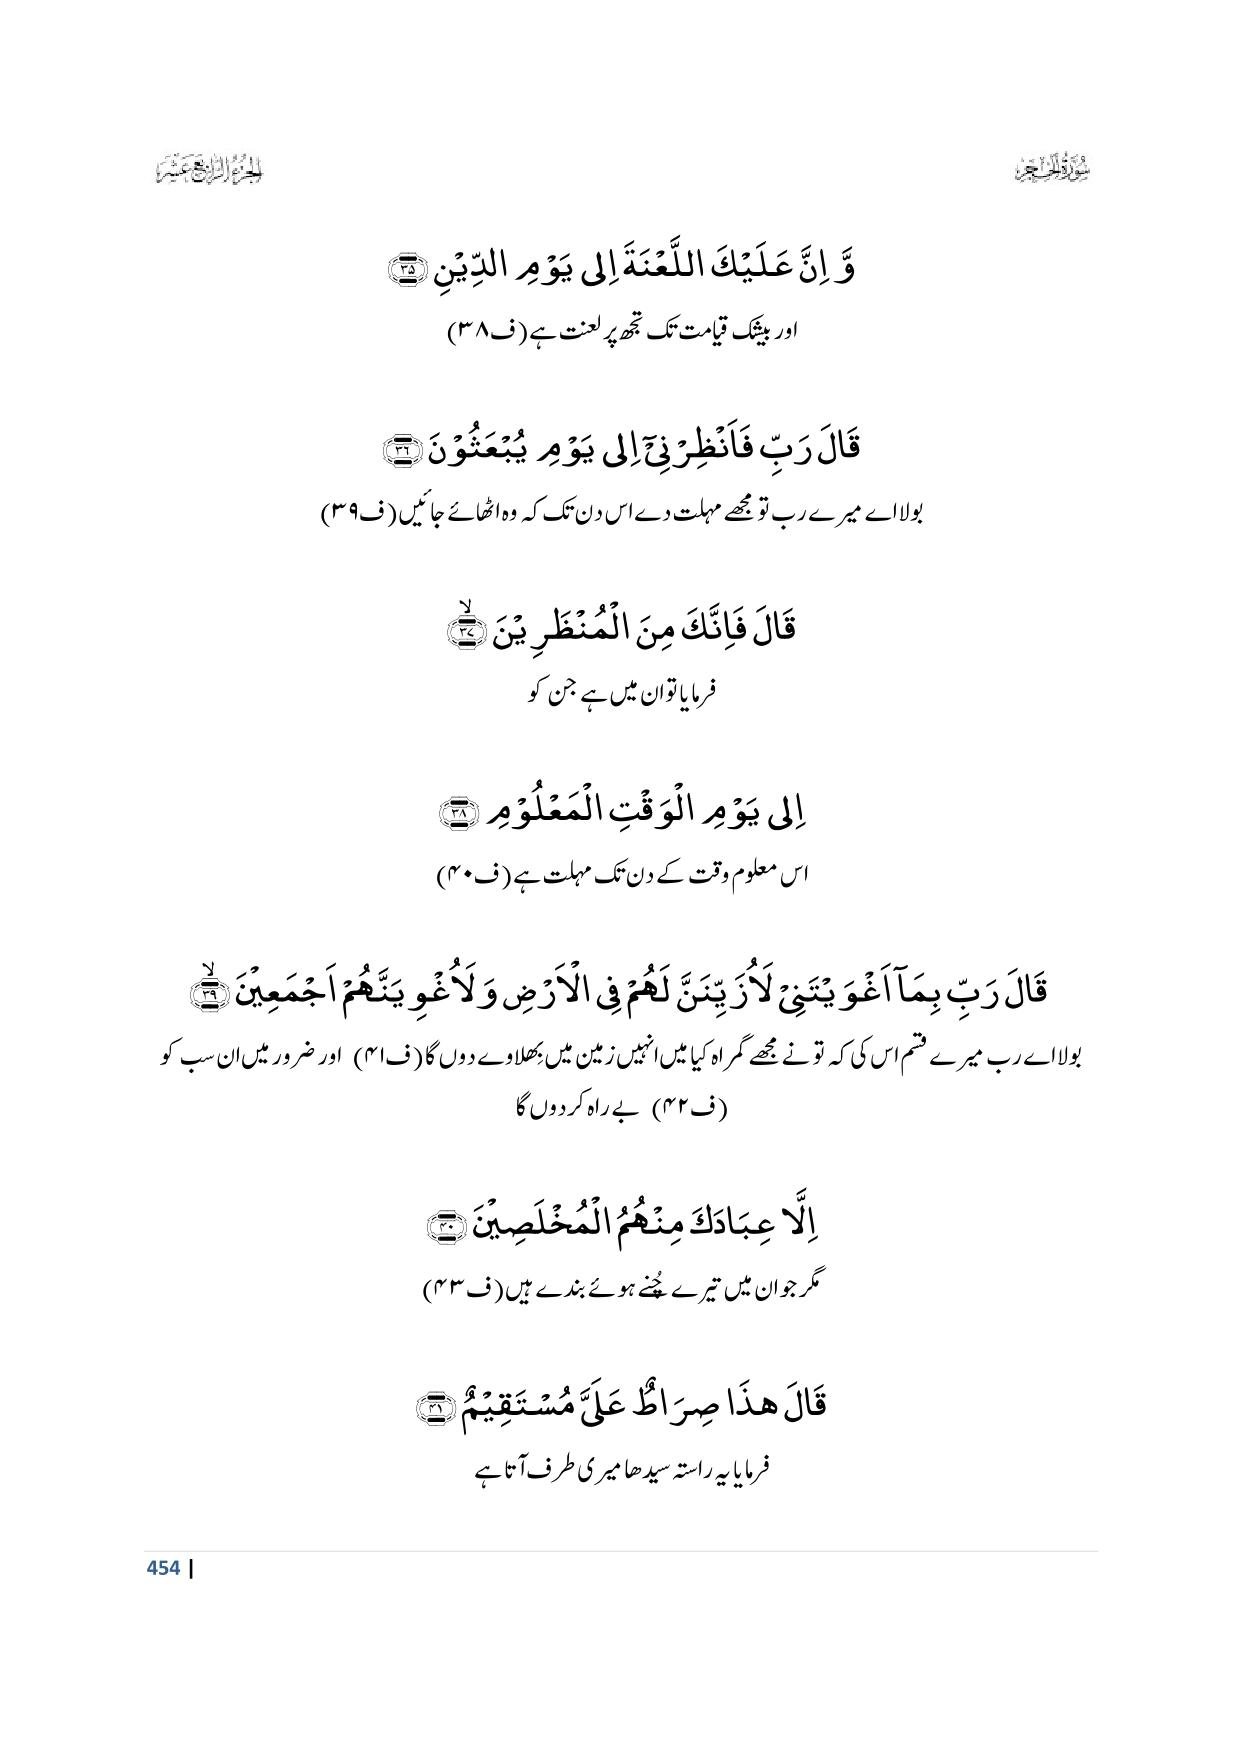 سُوْرَةُ الْحِجْر
الجزء الرابع عشر
وَّ اِنَّ عَلَيْكَ اللَّعْنَةَ اِلٰى يَوْمِ الدِّيْنِ ﴿۳۵﴾
اور بیشک قیامت تک تجھ پر لعنت ہے (ف۳۸)
قَالَ رَبِّ فَاَنْظِرْنِىْٓ اِلٰى يَوْمِ يُبْعَثُوْنَ ﴿۳۶﴾
بولا اے میرے رب تو مجھے مہلت دے اس دن تک کہ وہ اٹھائے جائیں (ف۳۹)
قَالَ فَاِنَّكَ مِنَ الْمُنْظَرِيْنَ ﴿ۙ۳۷﴾
فرمایا تو ان میں ہے جن کو
اِلٰى يَوْمِ الْوَقْتِ الْمَعْلُوْمِ ﴿۳۸﴾
اس معلوم وقت کے دن تک مہلت ہے (ف۴۰)
قَالَ رَبِّ بِمَآ اَغْوَيْتَنِىْ لَاُزَيِّنَنَّ لَهُمْ فِى الْاَرْضِ وَ لَاُغْوِيَنَّهُمْ اَجْمَعِيْنَ ﴿ۙ۳۹﴾
بولا اے رب میرے قسم اس کی کہ تو نے مجھے گمراہ کیا میں انہیں زمین میں بھلاوے دوں گا (ف۴۱) اور ضرور میں ان سب کو
(ف۴۲) بے راہ کردوں گا
اِلَّا عِبَادَكَ مِنْهُمُ الْمُخْلَصِيْنَ ﴿۴۰﴾
مگر جو ان میں تیرے چُنے ہوئے بندے ہیں (ف۴۳)
قَالَ هٰذَا صِرَاطٌ عَلَىَّ مُسْتَقِيْمٌ ﴿۴۱﴾
فرمایا یہ راستہ سیدھا میری طرف آتا ہے
454 |